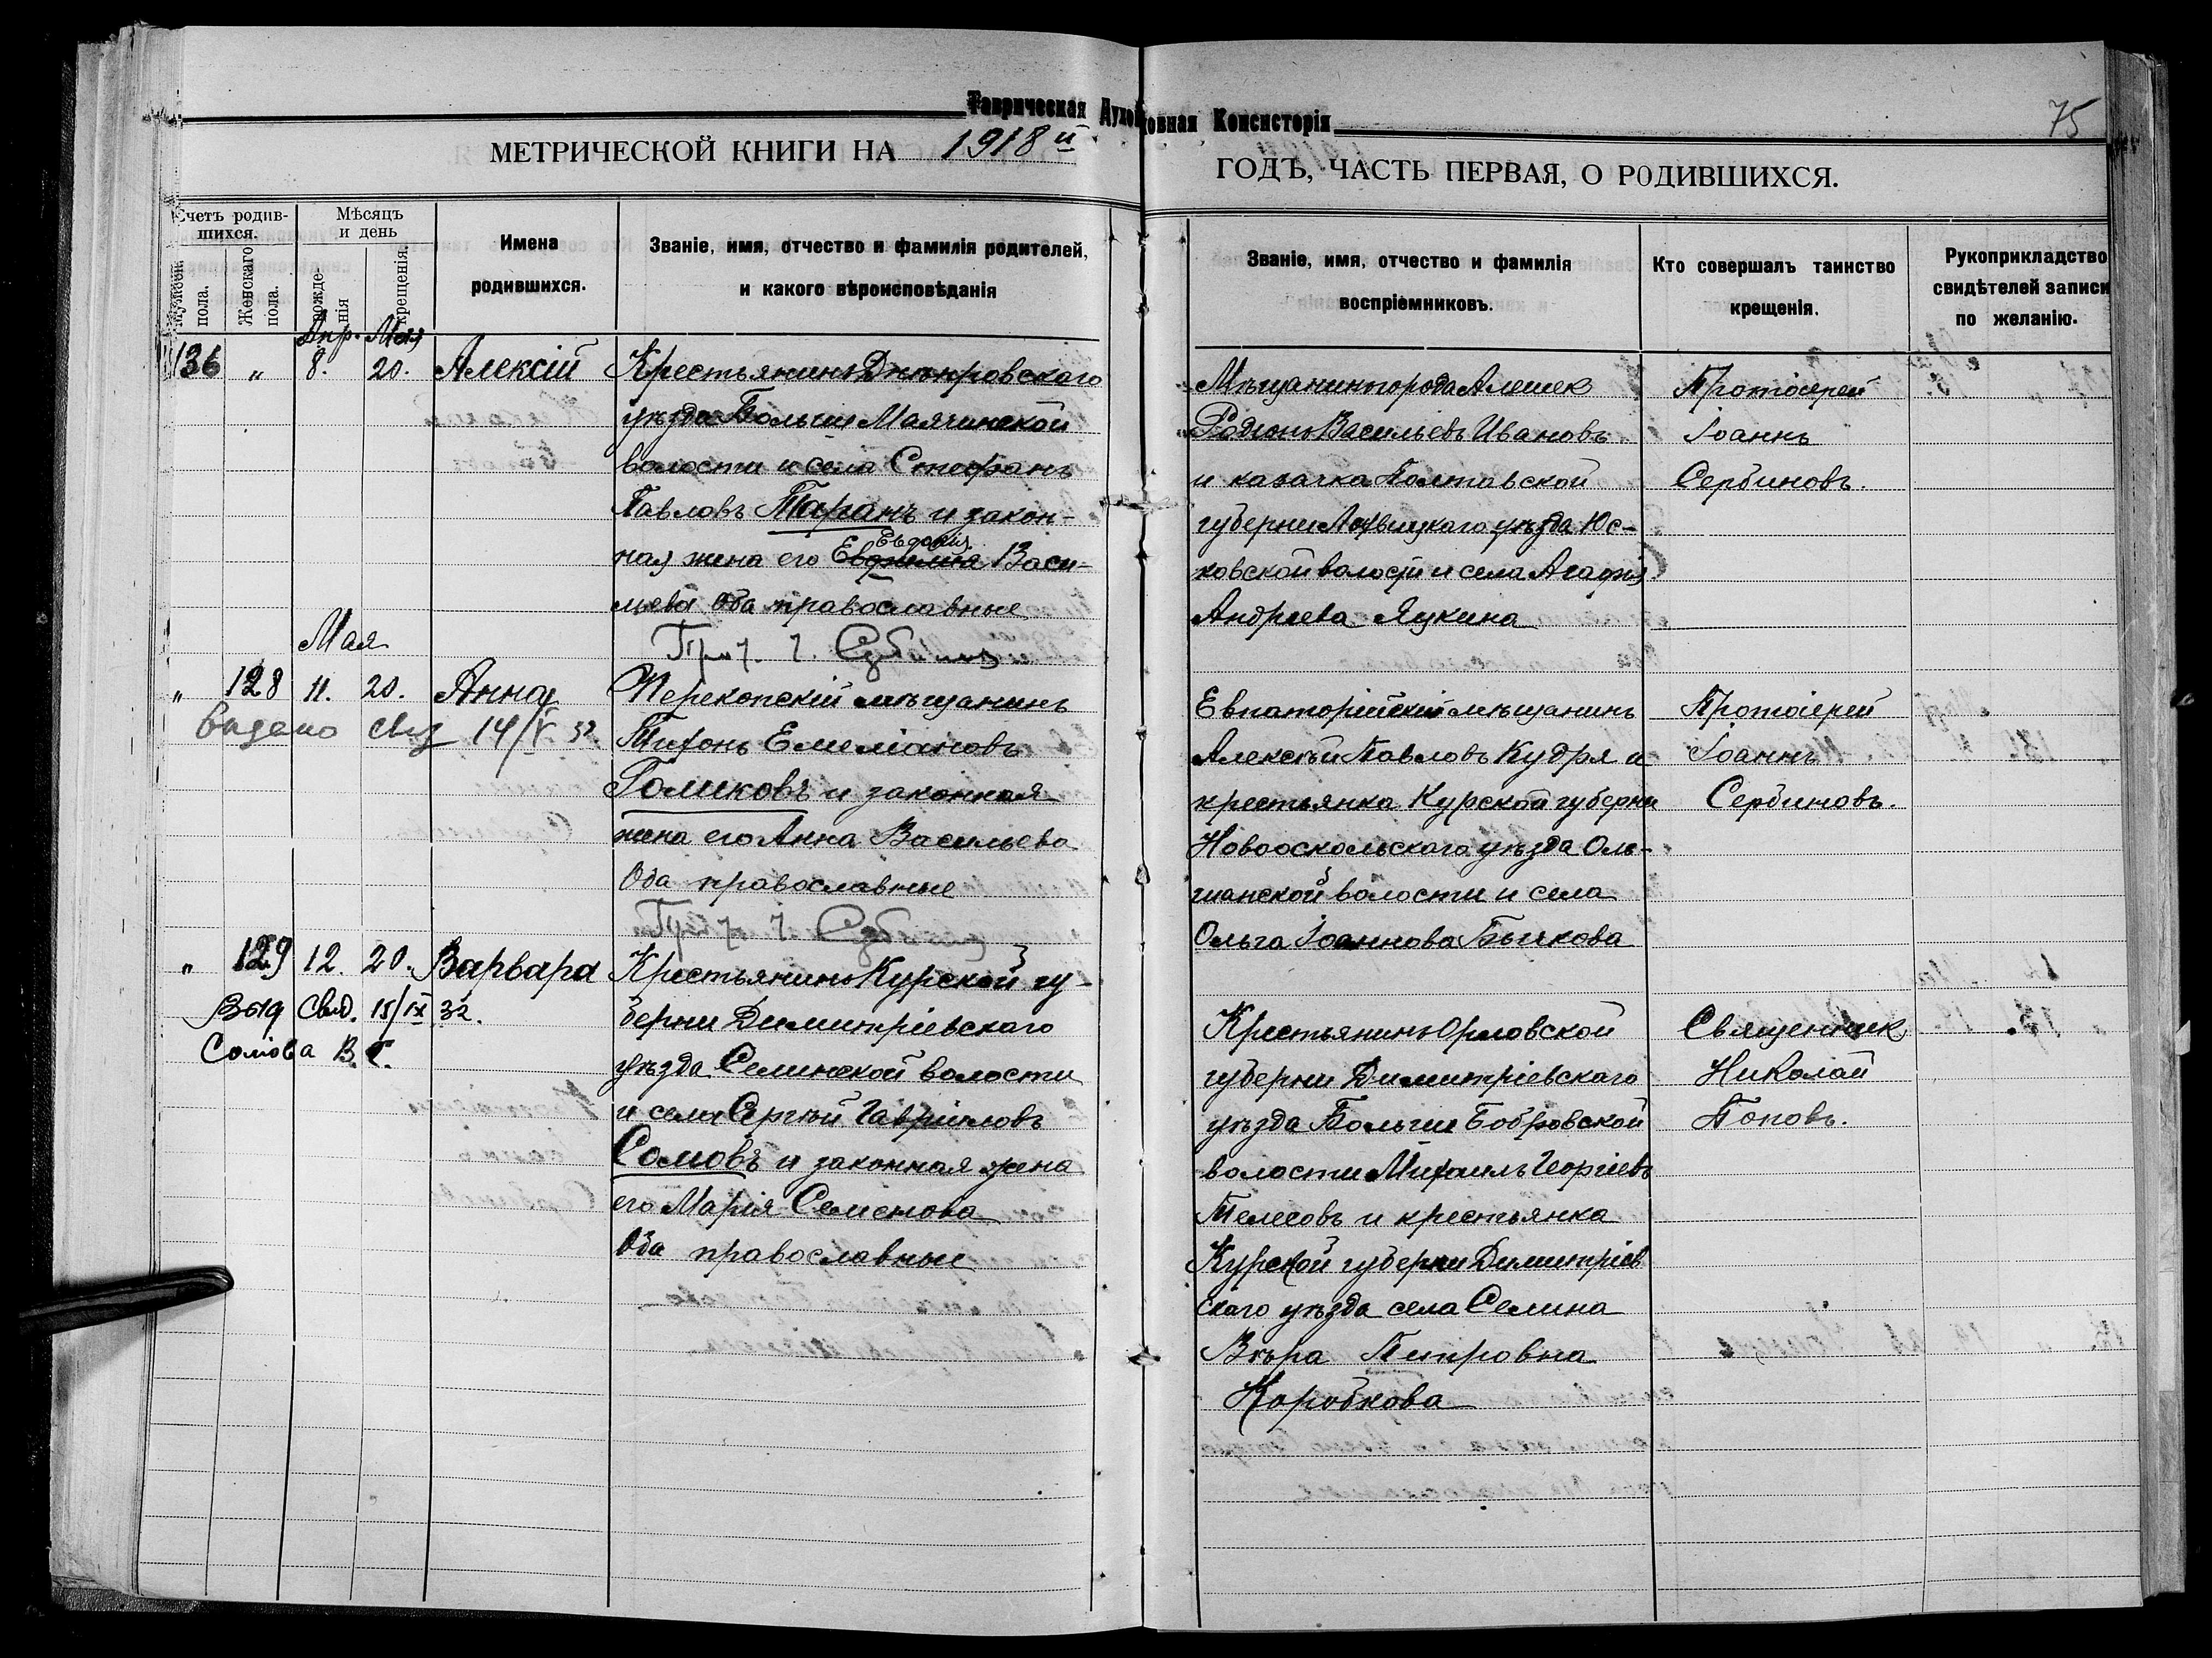 Таврическая Духовная Консисторія
75
МЕТРИЧЕСКОЙ КНИГИ НА 1918й
ГОДЪ, ЧАСТЬ ПЕРВАЯ, О РОДИВШИХСЯ.
Счетъ родив-
шихся.
Мужеск. пола.
Женскаго пола.
Мѣсяцъ
и день
рожде-
нія
крещенія.
Имена
родившихся.
Званіе, имя, отчество и фамилія родителей,
и какого вѣроисповѣданія
Званіе, имя, отчество и фамилія
воспріемниковъ.
Кто совершалъ таинство
крещенія.
Рукоприкладство
свидѣтелей записи
по желанію.
Апр. Мая
136 „ 8. 20. Алексій
Крестьянинъ Днѣпровскаго
уѣзда Больше Маячинской
волости и села Стефанъ
Павловъ Таранъ и закон-
Евдокія
ная жена его Васи-
льева Оба православные
Прот. І. Сербиновъ
Мѣщанинъ города Алешек
Родіонъ Васильевъ Ивановъ
и казачка Полтавской
губерни Лохвицкаго уѣзда Юс-
ковской волости и села Агафія
Андреева Яцкина
Протоіерей
Іоаннъ
Сербиновъ.
Мая
„ 128 11. 20. Анна
видано свид 14/V 32
Перекопскій мѣщанинъ
Тихонъ Емеліановъ
Голиковъ и законная
жена его Анна Васильева
Оба православные
Прот. І. Сербиновъ
Евпаторійскій мѣщанинъ
Алексѣй Павловъ Кудря и
крестьянка Курской губерни
Новооскольскаго уѣзда Оль-
шанской волости и села
Ольга Іоаннова Бычкова
Протоіерей
Іоаннъ
Сербиновъ.
„ 129 12. 20. Варвара
Выд Свид. 15/IX 32.
Сомова В.С.
Крестьянинъ Курской гу-
берни Димитріевскаго
уѣзда Селинской волости
и села Сергѣй Гавріиловъ
Сомовъ и законная жена
его Марія Семенова
Оба православные
Крестьянинъ Орловской
губерни Димитріевскаго
уѣзда Больше Бобровской
волости Михаилъ Георгіевъ
Телесовъ и крестьянка
Курской губерни Димитріев
скаго уѣзда села Селина
Вѣра Петровна
Коробкова
Священник
Николай
Поповъ.